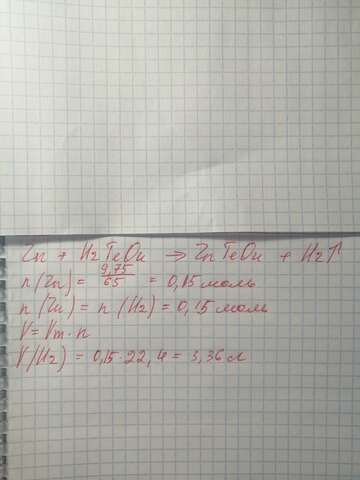 Zn + H2TeO4 → ZnTeO4 + H2↑
n(Zn) = 9,75/65 = 0,15 моль
n(Zn) = n(H2) = 0,15 моль
V = Vm · n
V(H2) = 0,15 · 22,4 = 3,36 л